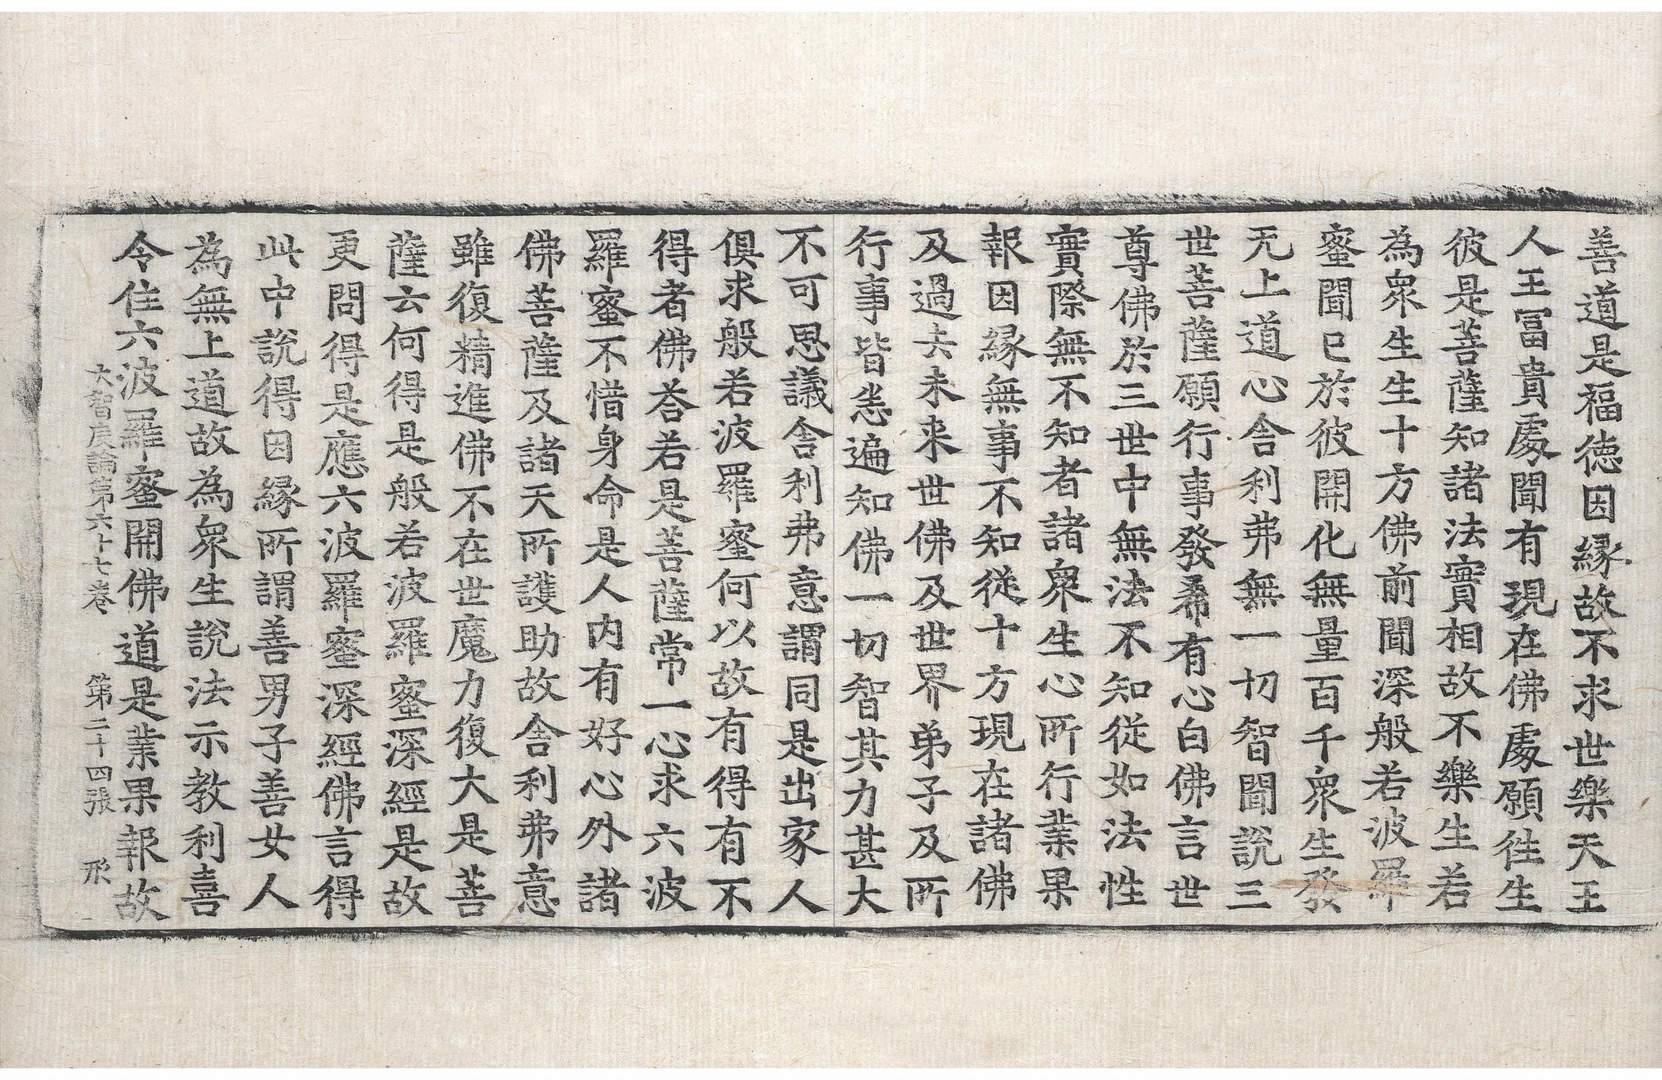 善道是福德因緣故不求世樂天王
人王冨貴處聞有現在佛處願徃生
彼是菩薩知諸法實相故不樂生若
為衆生生十方佛前聞深般若波羅
蜜聞已於彼開化無量百千衆生發
无上道心舍利弗無一切智聞說三
世菩薩願行事發希有心白佛言世
尊佛於三世中無法不知從如法性
實際無不知者諸衆生心所行業果
報因緣無事不知從十方現在諸佛
及過去未来世佛及世界弟子及所
行事皆悉遍知佛一切智其力甚大
不可思議舍利弗意謂同是出家人
俱求般若波羅蜜何以故有得有不
得者佛荅若是菩薩常一心求六波
羅蜜不惜身命是人內有好心外諸
佛菩薩及諸天所護助故舍利弗意
雖復精進佛不在世魔力復大是菩
薩云何得是般若波羅蜜深經是故
更問得是應六波羅蜜深經佛言得
此中說得因緣所謂善男子善女人
為無上道故為衆生說法示教利喜
令住六波羅蜜開佛道是業果報故
大智度論第六十七卷 第二十四張